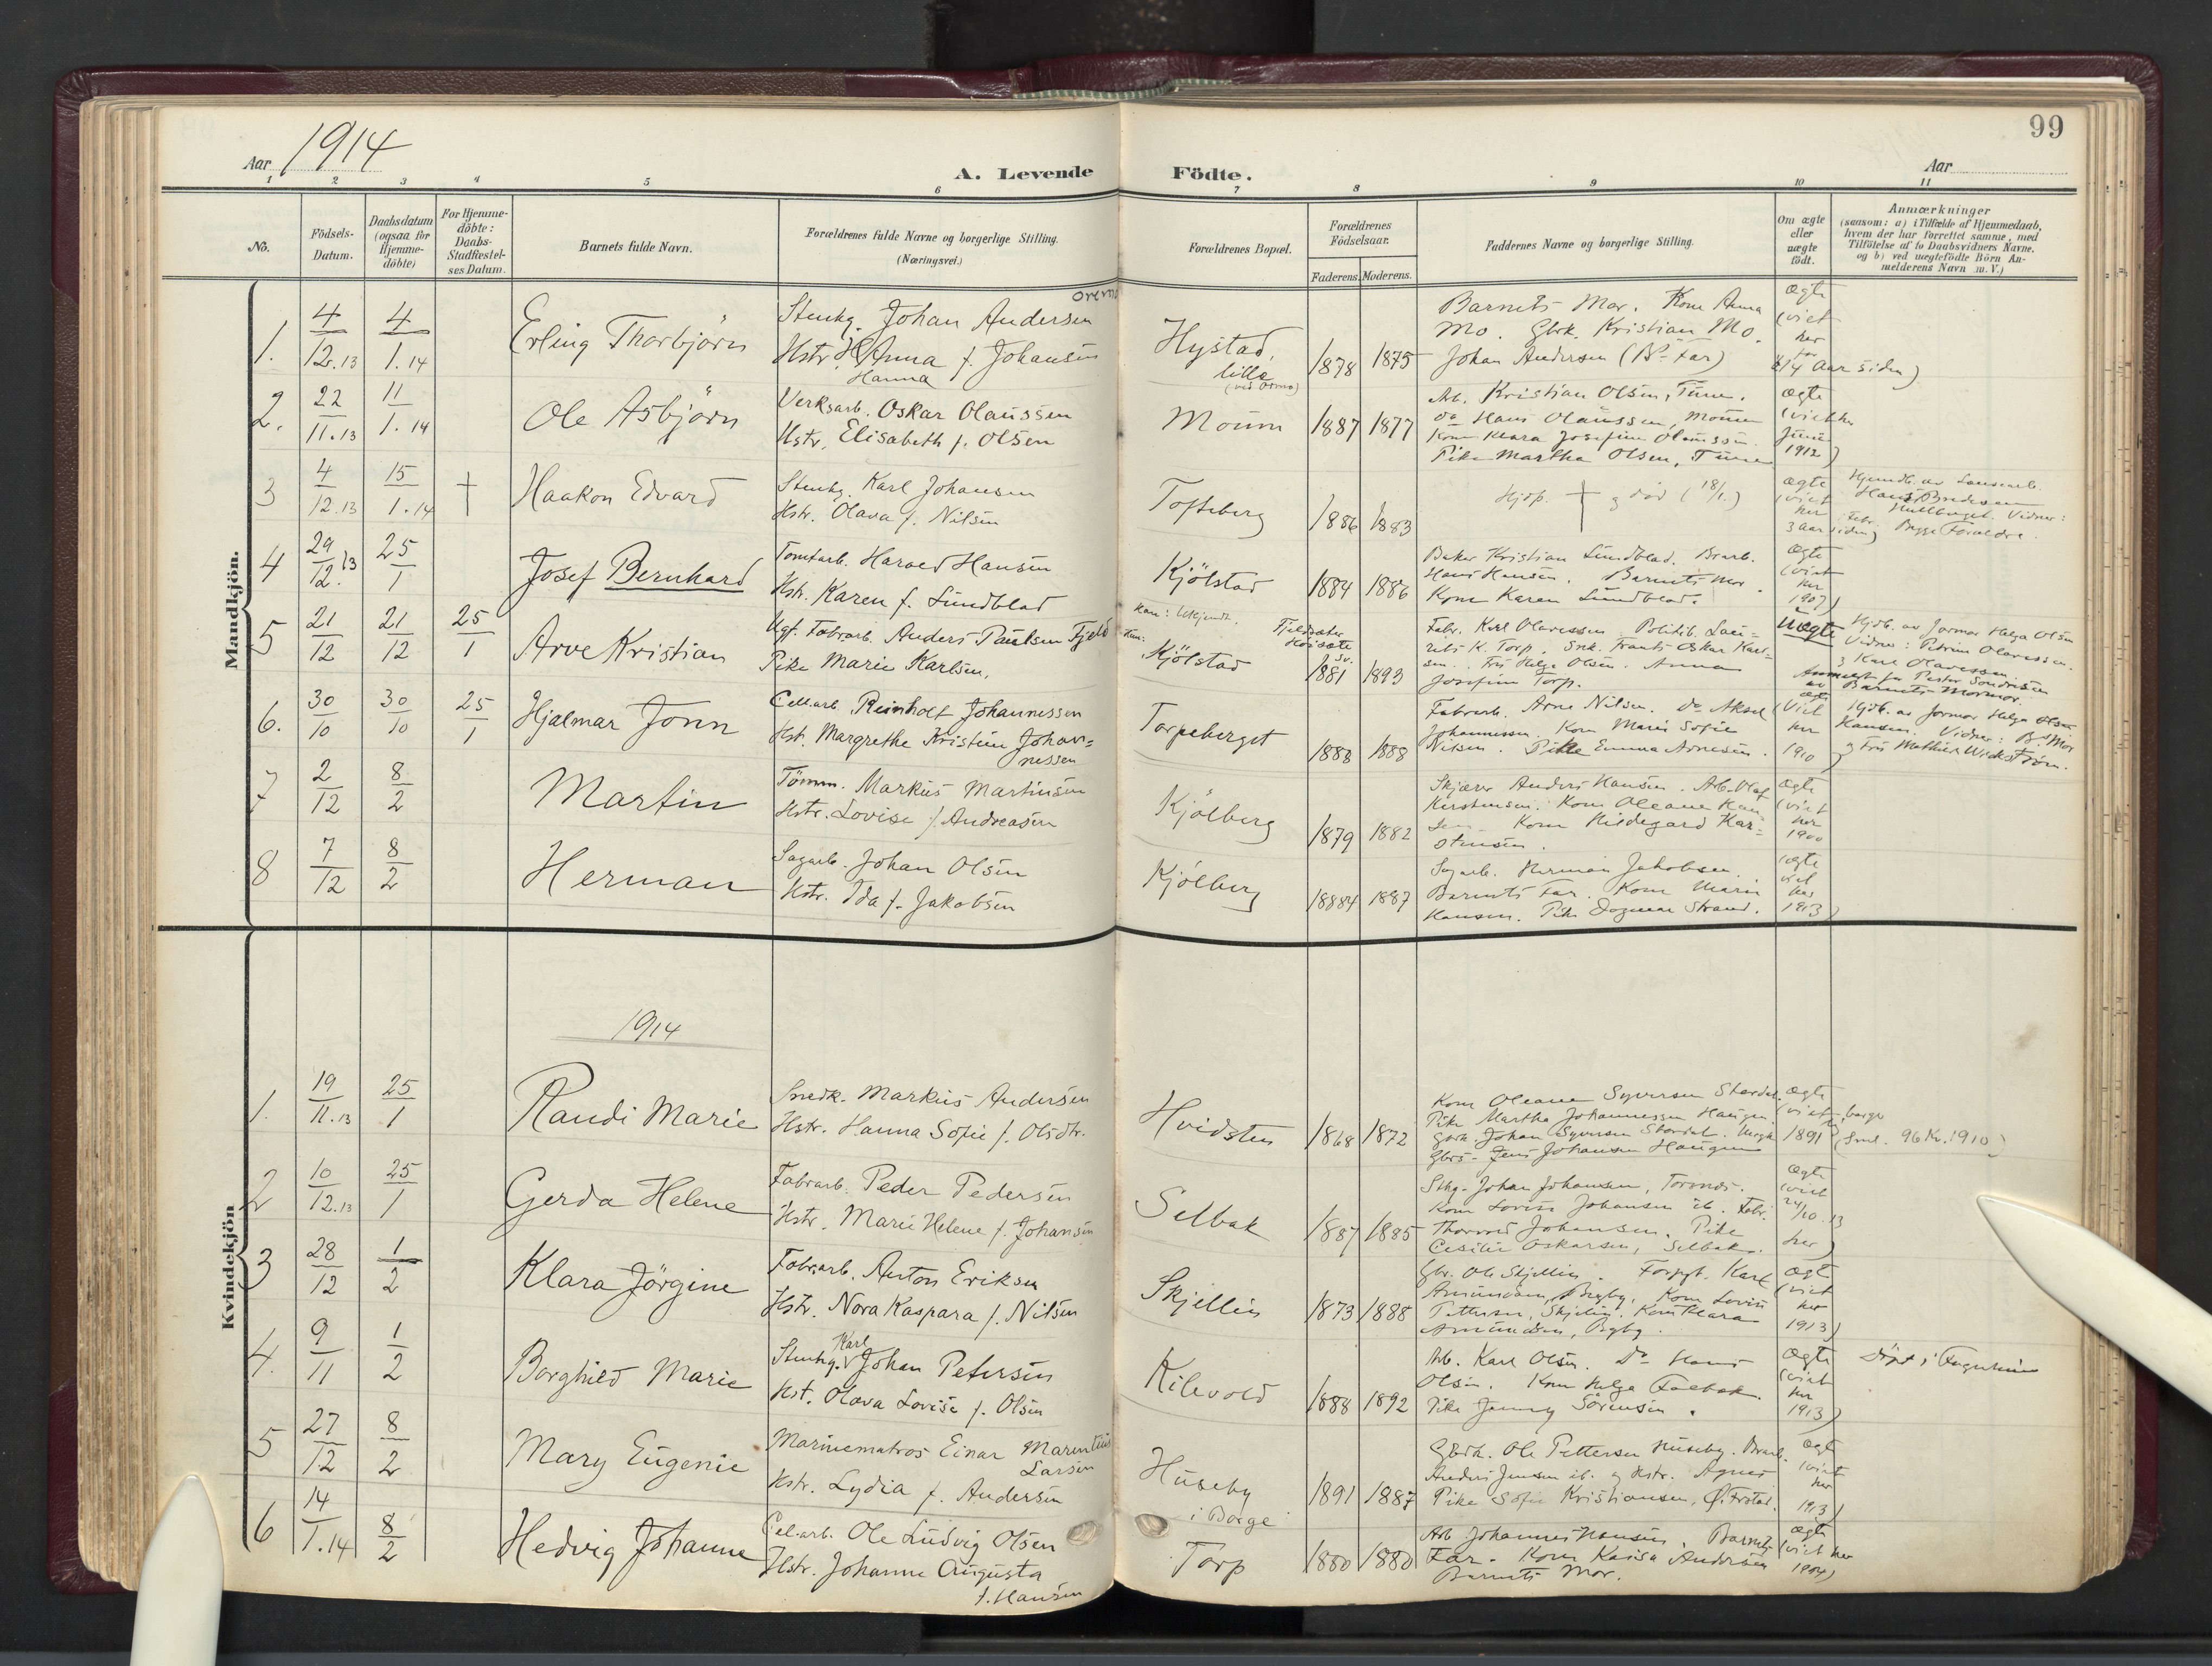 99
Aar 1914
A. Levende Fødte.
Aar
1 2 3 4 5 6 7 8 9 10 11
No.
Födsels-
Datum.
Daabsdatum
(ogsaa for
Hjemme-
döbte)
For Hjemme-
döbte:
Daabs-
Stadfæstel-
ses Datum.
Barnets fulde Navn.
Forældrenes fulde Navne og borgerlige Stilling.
(Næringsvei.)
Forældrenes Bopæl.
Forældrenes
Födselsaar.
Faderens. Moderens.
Faddernes Navne og borgerlige Stilling.
Om ægte
eller
uægte
födt.
Anmærkninger
(saasom: a) i Tilfælde af Hjemmedaab,
hvem der har forrettet samme, med
Tilföielse af to Daabsvidners Navne.
og b) ved uægtefödte Börn An-
melderens Navn m. V.)
Mandkjön.
1. 4/12.13 4/1.14
Erling Thorbjörn
Stenhg. Johan Andersen
Hstr. Anna f. Johansen
Hanna
Hystad,
lille
1878 1875
Barnets Mor. Kone Anna
Mo. Gbrk. Kristian Mo.
Johan Andersen (B. Far)
Ægte
(viet
her
for
14 Aar siden)
2. 22/11.13 11/1.14
Ole Asbjörn
Verksarb. Oskar Olaussen
Hstr. Elisabeth f. Olsen
Moum
1887 1877
Arb. Kristian Olsen, Tune.
do Hans Olaussen, Moum
Kone Klara Josefine Olaussen.
Pike Martha Olsen, Tune
Ægte
(viet her
Juni
1912)
3 4/12.13 15/1.14 †
Haakon Edvard
Stenhg. Karl Johansen
Hstr. Olava f. Nilsen
Tofteberg
1886 1883
Hjdp. † og död (18/1.)
Ægte
(viet
her Febr.
3 aar siden)
Hans Bredesen
Vidner:
Begge Forældre.
4 29/12.13 25/1
Josef Bernhard
Tomtarb. Harald Hansen
Hstr. Karen f. Lundblad
Kjölstad
1884 1886
Baker Kristian Lundblad. Brarb.
Hans Hansen. Barnets Mor.
Kone Karen Lundblad.
Ægte
(viet
her
1907)
5 21/12 21/12 25/1
Arve Kristian
Ugf. Fabrarb. Anders Paulsen Fjeld
Pike Marie Karlsen.
Kjölstad
1881 1893
Fabr. Karl Olavessen Politib. Lau-
rits K. Torp. Snk. Frants Oskar Karl-
sen. Frk Helga Olsen. Anna
Josefine Torp.
Uægte
Hjdb. av Jormor Helga Olsen
Vidner: Petrine Olavessen.
& Karl Olavessen
av Barnets Mormor.
6. 30/10 30/10 25/1
Hjalmar Jonn
Cellarb. Reinholt Johannessen
Hst. Margrethe Kristine Johan-
nessen
Torpeberget
1888 1888
Fabrarb. Arne Nilsen. do Aksel
Johannessen. Kone Marie Sofie
Nilsen. Pike Emma Arnesen.
Ægte
(Viet
her
1910)
Hjdb. av Jormor Helga Olsen
Hansen. Vidner: B. Mor
7 2/12 8/2
Martin
Tömm. Markus Martinsen
Hstr. Lovise f. Andreasen
Kjölberg
1879 1882
Skjærer Anders Hansen. Arb. Olaf
Karstensen. Kone Oleane Han-
sen. Kone Hildegard Kar-
stensen.
Ægte
(viet
her
1900
8 7/12 8/2
Herman
Sagarb. Johan Olsen
Hstr. Ida f. Jakobsen
Kjölberg
18884 1887
Sagarb. Herman Jakobsen.
Barnets Far. Kone Marie
Hansen. Pike Dagmar Strand.
Ægte
viet
her
1913)
Kvindekjön
1914
1. 19/11.13 25/1
Randi Marie
Snedk. Markus Andersen
Hstr. Hanna Sofie f. Olsdtr.
Hvidsten
1868 1872
Kone Oleane Syversen Stordal.
Pike Martha Johannessen Haugen
Gbrk. Johan Syversen Stordal.
Jens Johansen Haugen
Ægte
(viet i Borge
1891
(Sml. 96 Kv. 1910)
2 10/12.13 25/1
Gerda Helene
Fabrarb. Peder Pedersen
Hstr. Marie Helene f. Johansen
Selbak
1887 1885
Sthg. Johan Johansen, Torsnes.
Kone Lovise Johansen ib. Fabr.
Thorvald Johansen. Pike
Cesilie Oskarsen, Selbak.
Ægte
(viet
24/10.13
her)
3 28/12 1/2
Klara Jörgine
Fabrarb. Anton Eriksen
Hstr. Nora Kaspara f. Nilsen
Skjellin
1873 1888
Gbr. Ole Skjellin. Forpgt. Karl
Amundsen, Bygby. Kone Lovise
Pettersen, Skjelin. Kone Klara
Amundsen, Bygby.
Ægte
(viet
her
1913)
4. 9/11 1/2
Borghild Marie
Karl
Stenhg. Johan Petersen
Hst. Olava Lovise f. Olsen
Kilevold
1888 1892
Arb. Karl Olsen. do Hans
Olsen. Kone Helga Falbak.
Pike Jenny Sörensen.
Ægte
(viet
her
1913)
5 27/12 8/2
Mary Eugenie
Marinematros Einar Marentius
Larsen
Hstr. Lydia f. Andersen
Huseby
i Borge
1891 1887
Gbrk. Ole Pettersen Huseby. Brarb.
Anders Jensen ib. og Hstr. Agnes
Pike Sofie Kristiansen, Ø. Frstad.
Ægte
(viet
her
1913)
6 14/1.14 8/2
Hedvig Johanne
Cel.arb. Ole Ludvig Olsen
Hstr. Johanne Augusta
f. Hansen
Torp
1880 1880
Arb. Johannes Hansen. Barnets
Far. Kone Kaisa Andersen
Barnets Mor.
Ægte
(viet her
1904)